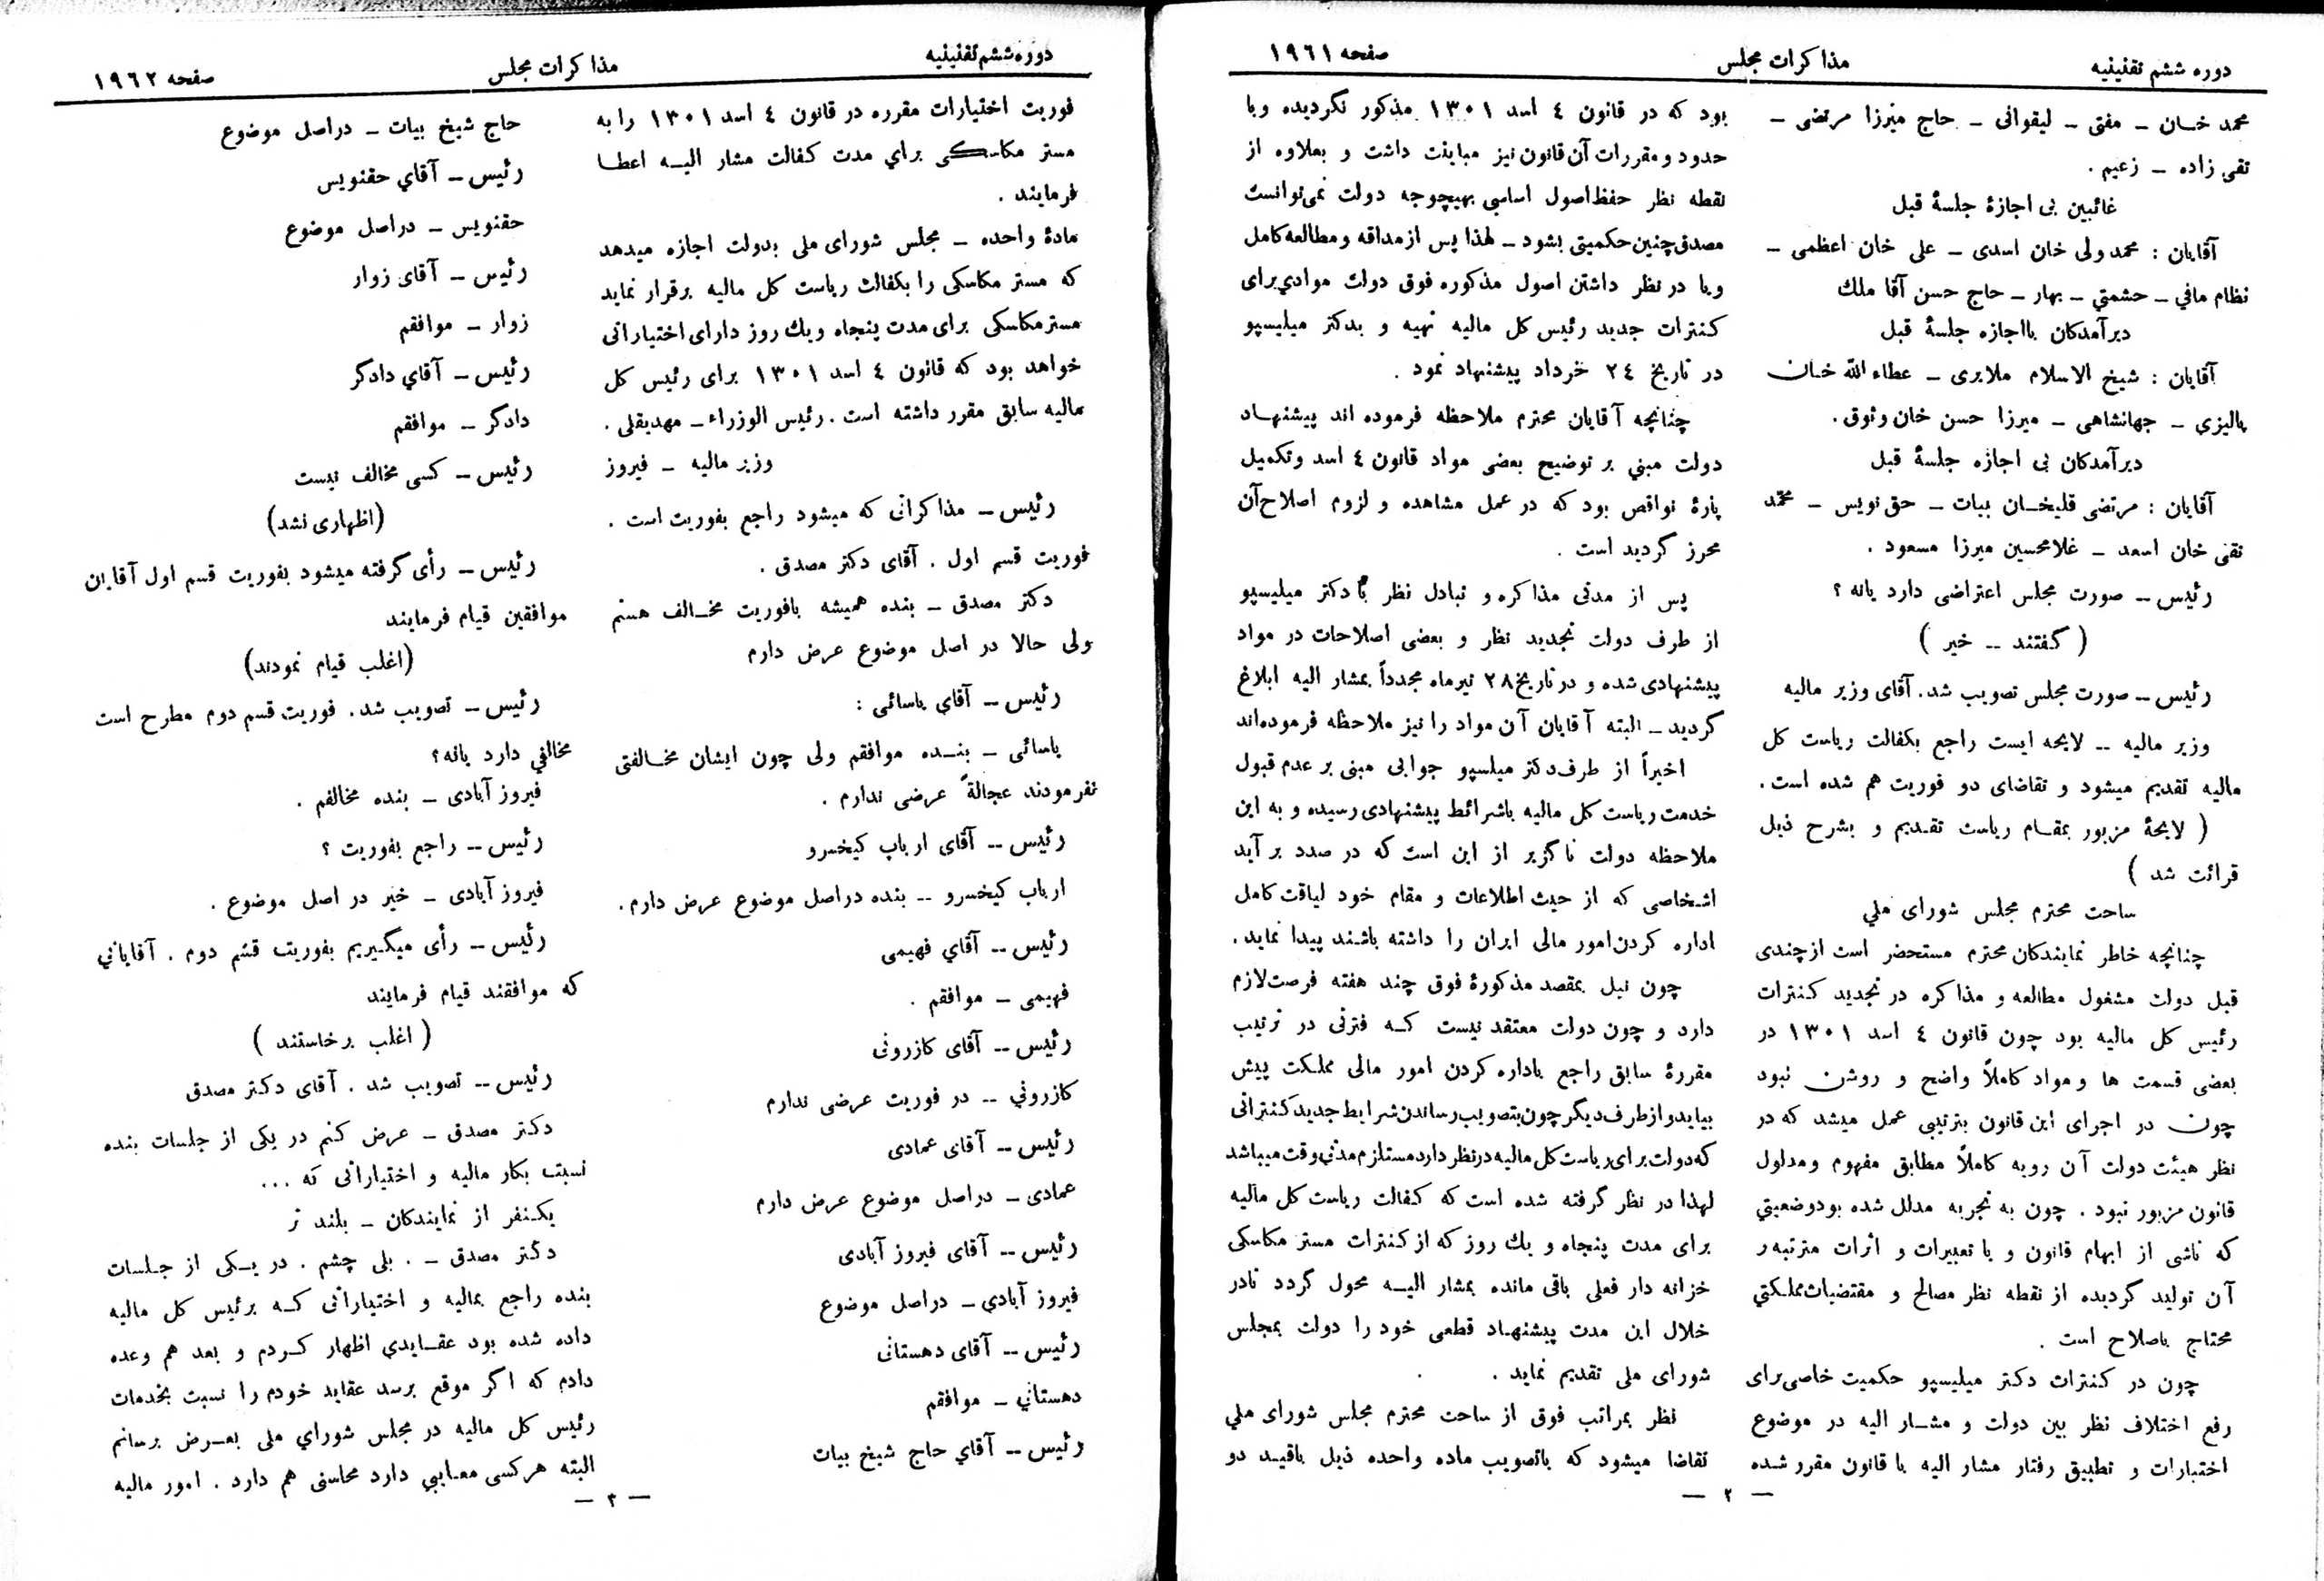 دوره ششم تقنینیه
مذاکرات مجلس
صفحه ۱۹۶۱
محمد خان ــ مفتی ــ لیقوانی ــ حاج میرزا مرتضی ــ
تقی زاده ــ زعیم .
غائبین بی اجازهٔ جلسهٔ قبل
آقایان : محمد ولی خان اسدی ــ علی خان اعظمی ــ
نظام مافي ــ حشمتي ــ بهار ــ حاج حسن آقا ملك
دیرآمدکان بااجازه جلسهٔ قبل
آقایان : شیخ الاسلام ملایری ــ عطاء الله خان
پالیزي ــ جهانشاهی ــ میرزا حسن خان وثوق .
دیرآمدکان بی اجازه جلسهٔ قبل
آقایان : مرتضی قلیخان بیات ــ حق نویس ــ محمد
تقی خان اسعد ــ غلامحسین میرزا مسعود .
رئیس ــ صورت مجلس اعتراضی دارد یانه ؟
( گفتند ــ خیر )
رئیس ــ صورت مجلس تصویب شد. آقای وزیر مالیه
وزیر مالیه ــ لایحه ایست راجع بکفالت ریاست کل
مالیه تقدیم میشود و تقاضای دو فوریت هم شده است .
( لایحهٔ مزبور بمقام ریاست تقدیم و بشرح ذیل
قرائت شد )
ساحت محترم مجلس شورای ملي
چنانچه خاطر نمایندکان محترم مستحضر است از چندی
قبل دولت مشغول مطالعه و مذاکره در تجدید کنترات
رئیس کل مالیه بود چون قانون ٤ اسد ۱۳۰۱ در
بعضی قسمت ها و مواد کاملاً واضح و روشن نبود
چون در اجرای این قانون بترتیبی عمل میشد که در
نظر هیئت دولت آن رویه کاملاً مطابق مفهوم و مدلول
قانون مزبور نبود . چون به تجربه مدلل شده بود وضعیتي
که ناشی از ابهام قانون و یا تعبیرات و اثرات مترتبه ر
آن تولید گردیده از نقطه نظر مصالح و مقتضیات مملکتي
محتاج باصلاح است .
چون در کنترات دکتر میلیسپو حکمیت خاصی برای
رفع اختلاف نظر بین دولت و مشار الیه در موضوع
اختیارات و تطبیق رفتار مشار الیه با قانون مقرر شده
بود که در قانون ٤ اسد ۱۳۰۱ مذکور نگردیده وبا
حدود و مقررات آن قانون نیز مباینت داشت و بعلاوه از
نقطه نظر حفظ اصول اساسی بهیچوجه دولت نمی توانست
مصدق چنین حکمیتی بشود ــ لهذا پس از مداقه و مطالعه کامل
وبا در نظر داشتن اصول مذکوره فوق دولت موادي برای
کنترات جدید رئیس کل مالیه تهیه و بدکتر میلیسپو
در تاریخ ۲٤ خرداد پیشنهاد نمود .
چنانچه آقایان محترم ملاحظه فرموده اند پیشنهاد
دولت مبني بر توضیح بعضی مواد قانون ٤ اسد وتکمیل
پارهٔ نواقص بود که در عمل مشاهده و لزوم اصلاح آن
محرز گردید است .
پس از مدتی مذاکره و تبادل نظر با دکتر میلیسپو
از طرف دولت تجدید نظر و بعضی اصلاحات در مواد
پیشنهادی شده و در تاریخ ۲۸ تیرماه مجدداً بمشار الیه ابلاغ
گردید ــ البته آقایان آن مواد را نیز ملاحظه فرموده‌اند
اخیراً از طرف دکتر میلسپو جوابی مبنی بر عدم قبول
خدمت ریاست کل مالیه باشرائط پیشنهادی رسیده و به این
ملاحظه دولت ناگزیر از این است که در صدد بر آید
اشخاصی که از حیث اطلاعات و مقام خود لیاقت کامل
اداره کردن امور مالی ایران را داشته باشند پیدا نماید.
چون نیل بمقصد مذکورهٔ فوق چند هفته فرصت لازم
دارد و چون دولت معتقد نیست که فترتی در ترتیب
مقررهٔ سابق راجع باداره کردن امور مالی مملکت پیش
بیاید و از طرف دیگر چون بتصویب رساندن شرایط جدید کنتراتی
که دولت برای ریاست کل مالیه در نظر دارد مستلزم مدتی وقت میباشد
لهذا در نظر گرفته شده است که کفالت ریاست کل مالیه
برای مدت پنجاه و یك روز که از کنترات مستر مکاسکی
خزانه دار فعلی باقی مانده بمشار الیه محول گردد تادر
خلال این مدت پیشنهاد قطعی خود را دولت بمجلس
شورای ملی تقدیم نماید .
نظر بمراتب فوق از ساحت محترم مجلس شورای ملي
تقاضا میشود که باتصویب ماده واحده ذیل باقید دو
— ۲ —
دوره ششم تقنینیه
مذاکرات مجلس
صفحه ۱۹۶۲
فوریت اختیارات مقرره در قانون ٤ اسد ۱۳۰۱ را به
مستر مکاسکی براي مدت کفالت مشار الیه اعطا
فرمایند .
مادهٔ واحده ــ مجلس شورای ملی بدولت اجازه میدهد
که مستر مکاسکی را بکفالت ریاست کل مالیه برقرار نماید
مستر مکاسکی برای مدت پنجاه ویك روز دارای اختیاراتی
خواهد بود که قانون ٤ اسد ۱۳۰۱ برای رئیس کل
مالیه سابق مقرر داشته است . رئیس الوزراء ــ مهدیقلی .
وزیر مالیه ــ فیروز
رئیس ــ مذاکراتی که میشود راجع بفوریت است .
فوریت قسم اول . آقای دکتر مصدق .
دکتر مصدق ــ بنده همیشه بافوریت مخالف هستم
ولی حالا در اصل موضوع عرض دارم
رئیس ــ آقاي یاسائی :
یاسائی ــ بنده موافقم ولی چون ایشان مخالفتی
نفرمودند عجالةً عرضی ندارم .
رئیس ــ آقای ارباب کیخسرو
ارباب کیخسرو ــ بنده در اصل موضوع عرض دارم .
رئیس ــ آقاي فهیمی
فهیمی ــ موافقم .
رئیس ــ آقای کازرونی
کازروني ــ در فوریت عرضی ندارم
رئیس ــ آقای عمادی
عمادی ــ دراصل موضوع عرض دارم
رئیس ــ آقای فیروز آبادی
فیروز آبادي ــ دراصل موضوع
رئیس ــ آقای دهستانی
دهستاني ــ موافقم
رئیس ــ آقاي حاج شیخ بیات
حاج شیخ بیات ــ دراصل موضوع
رئیس ــ آقاي حقنویس
حقنویس ــ دراصل موضوع
رئیس ــ آقای زوار
زوار ــ موافقم
رئیس ــ آقاي دادکر
دادکر ــ موافقم
رئیس ــ کسی مخالف نیست
(اظهاری نشد)
رئیس ــ رأی گرفته میشود بفوریت قسم اول آقایان
موافقین قیام فرمایند
(اغلب قیام نمودند)
رئیس ــ تصویب شد. فوریت قسم دوم مطرح است
مخالفي دارد یانه ؟
فیروز آبادی ــ بنده مخالفم .
رئیس ــ راجع بفوریت ؟
فیروز آبادی ــ خیر در اصل موضوع .
رئیس ــ رأی میگیریم بفوریت قسم دوم . آقایاني
که موافقند قیام فرمایند
( اغلب برخاستند )
رئیس ــ تصویب شد . آقای دکتر مصدق
دکتر مصدق ــ عرض کنم در یکی از جلسات بنده
نسبت بکار مالیه و اختیاراتی که ...
یکنفر از نمایندکان ــ بلند تر
دکتر مصدق ــ . بلی چشم . در یکی از جلسات
بنده راجع بمالیه و اختیاراتی که برئیس کل مالیه
داده شده بود عقایدي اظهار کردم و بعد هم وعده
دادم که اگر موقع برسد عقاید خودم را نسبت بخدمات
رئیس کل مالیه در مجلس شوراي ملی بعرض برسانم
البته هرکسی معایبي دارد محاسنی هم دارد . امور مالیه
— ۳ —